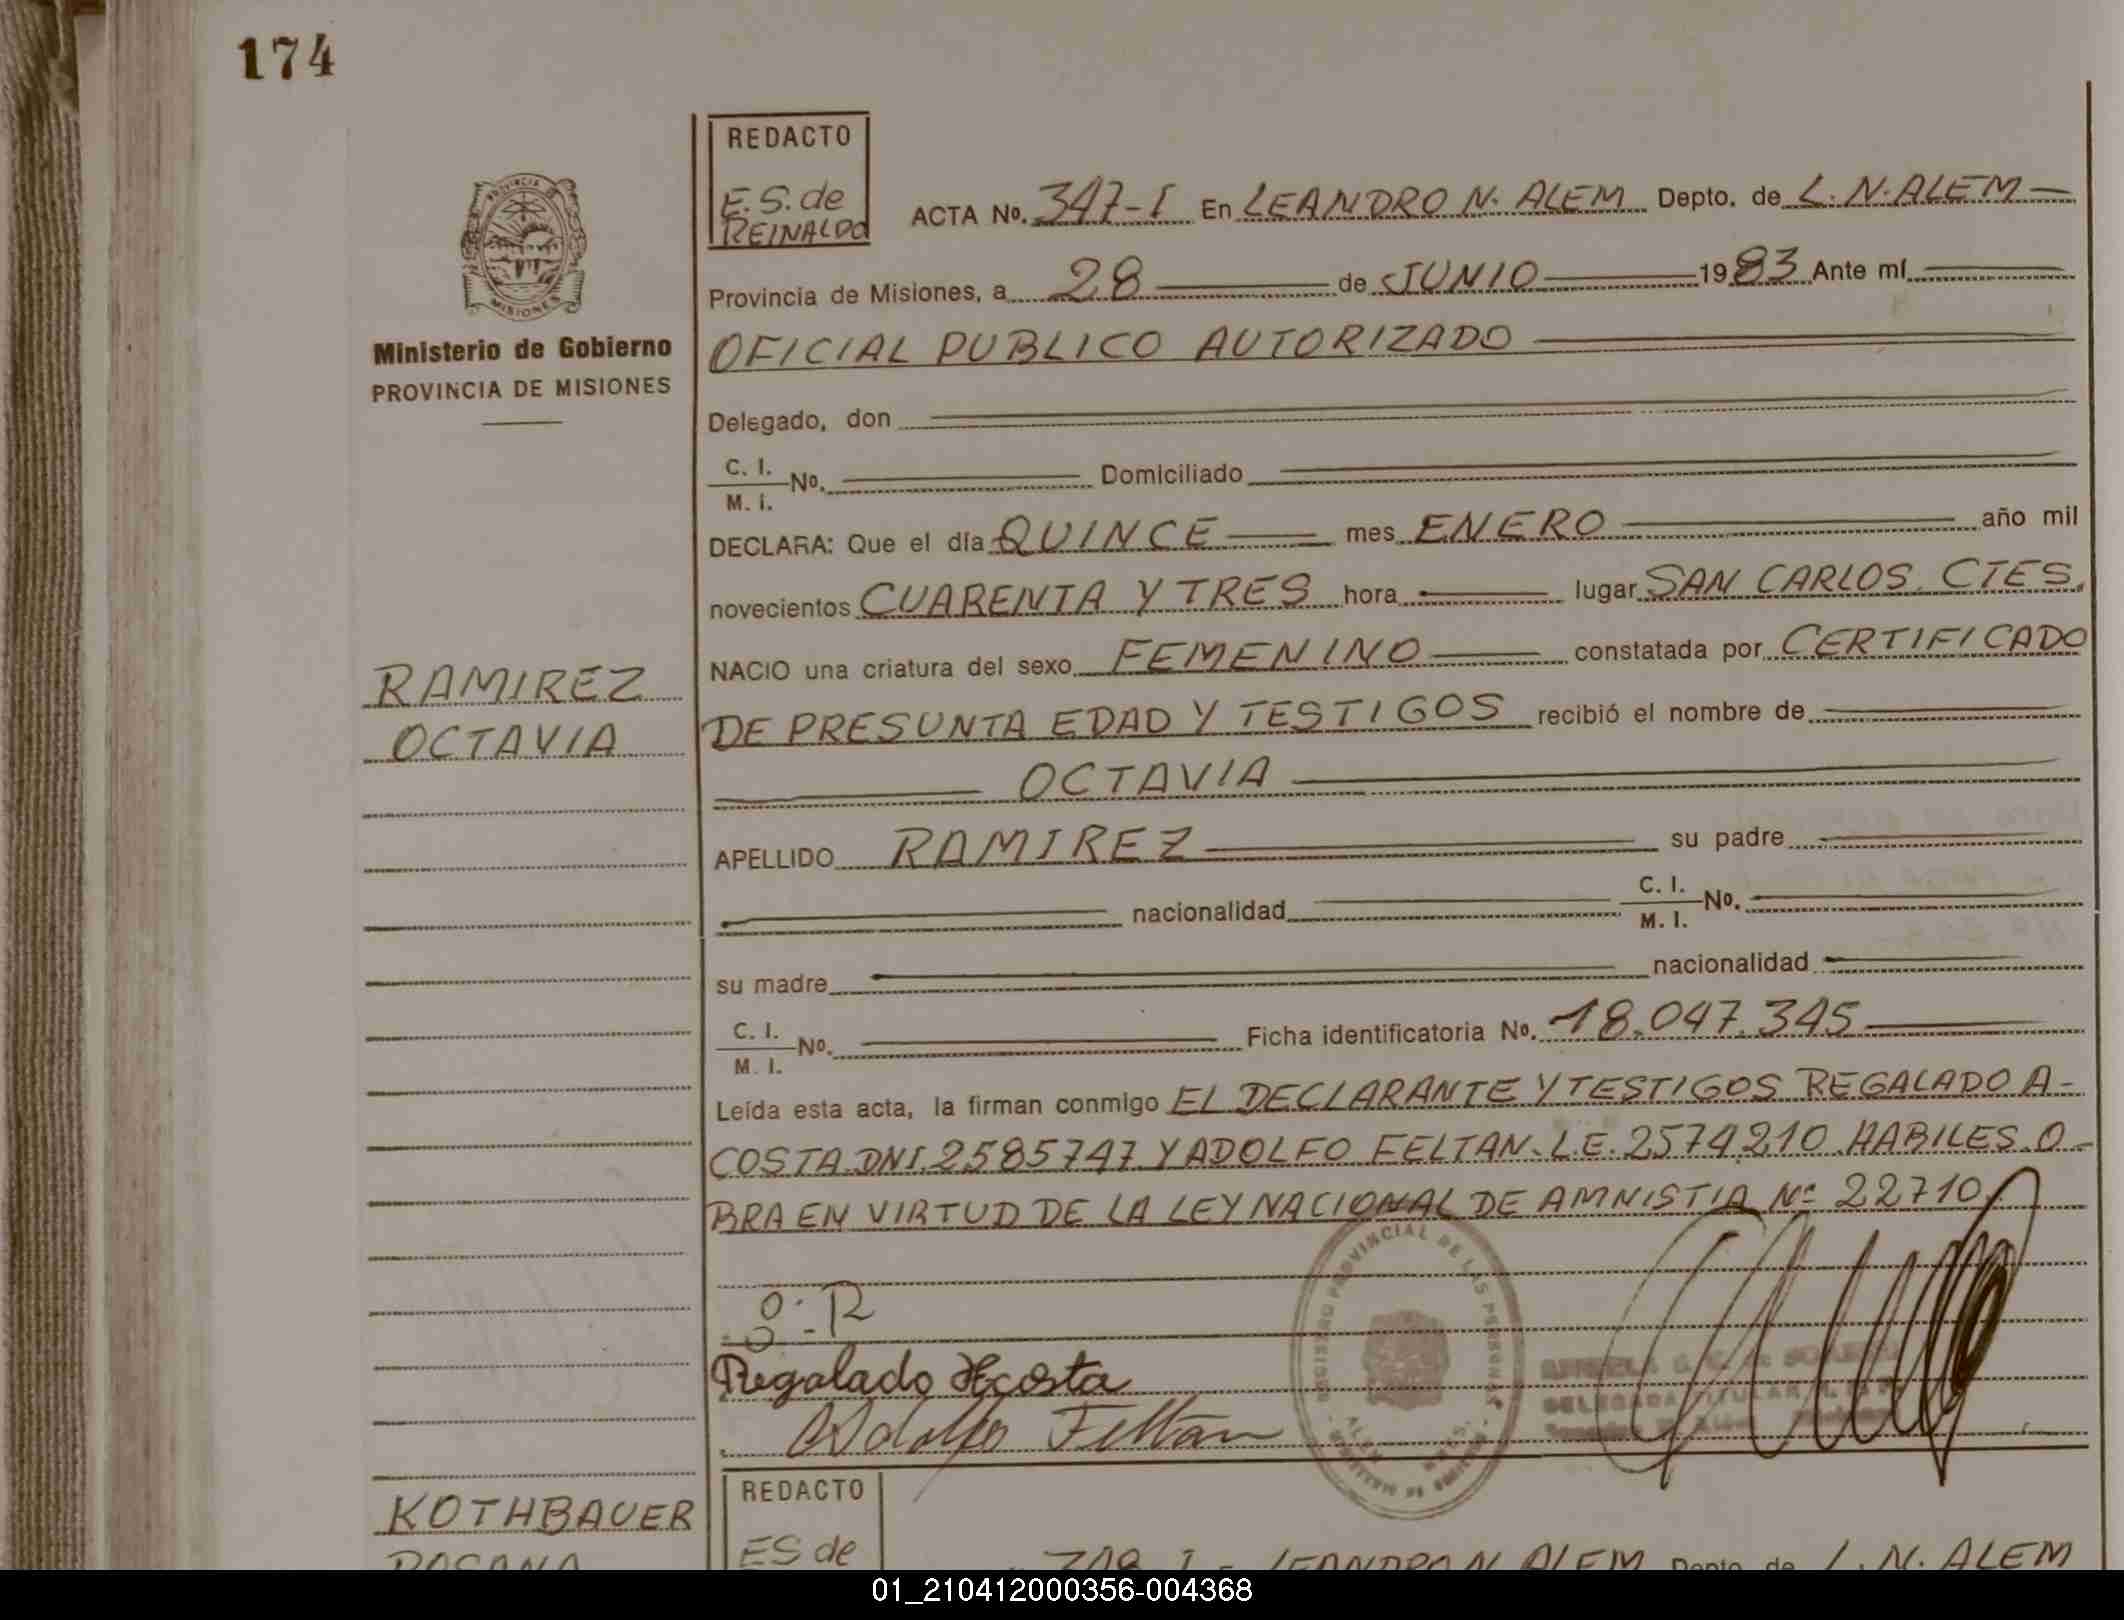 174
REDACTO
E.S. de
REINALDO
ACTA No. 347-I En LEANDRO N. ALEM Depto. de L. N. ALEM
PROVINCIA
MISIONES
Provincia de Misiones, a 28 de JUNIO 1983 Ante mí
Ministerio de Gobierno
PROVINCIA DE MISIONES
OFICIAL PUBLICO AUTORIZADO
Delegado, don
C. I.
M. I. No. Domiciliado
DECLARA: Que el día QUINCE mes ENERO año mil
novecientos CUARENTA Y TRES hora lugar SAN CARLOS. CTES.
NACIO una criatura del sexo FEMENINO constatada por CERTIFICADO
RAMIREZ
OCTAVIA
DE PRESUNTA EDAD Y TESTIGOS recibió el nombre de
OCTAVIA
APELLIDO RAMIREZ su padre
nacionalidad C. I.
M. I. No.
su madre nacionalidad
C. I.
M. I. No. Ficha identificatoria No. 18.047.345
Leída esta acta, la firman conmigo EL DECLARANTE Y TESTIGOS REGALADO A-
COSTA. DNI. 2585747 Y ADOLFO FELTAN. L.E. 2574210 HABILES. O-
BRA EN VIRTUD DE LA LEY NACIONAL DE AMNISTIA Nº 22710.
O. R
Regalado Acosta
Adolfo Feltan
REGISTRO PROVINCIAL DE LAS PERSONAS
ALEM
DELEGADA TITULAR
KOTHBAUER
ROSANA
REDACTO
ES de
348-I LEANDRO N. ALEM Depto. de L. N. ALEM
01_210412000356-004368